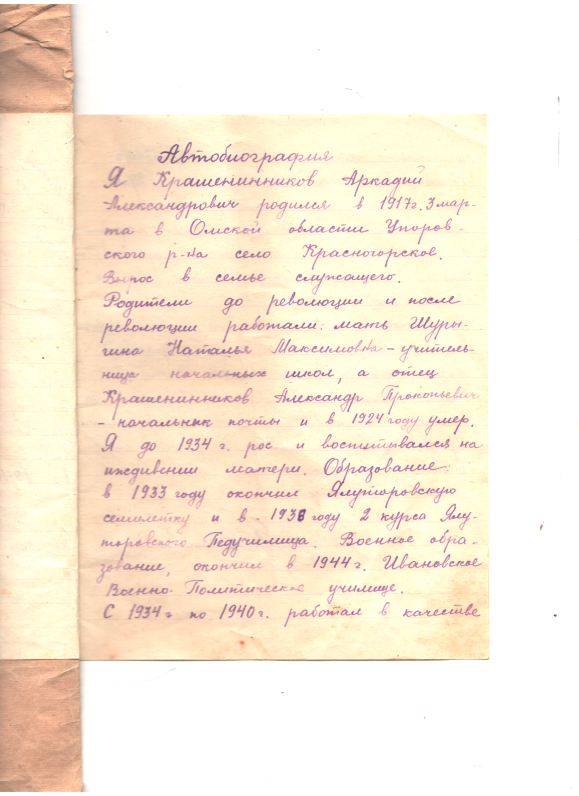 Автобиография
Я Крашенинников Аркадий
Александрович родился в 1917г. 3 мар-
та в Омской области Упоров-
ского р-на село Красногорское.
Вырос в семье служащего.
Родители до революции и после
революции работали: мать Шуры-
гина Наталья Максимовна - учитель-
ница начальных школ, а отец
Крашенинников Александр Прокопьевич
- начальник почты и в 1924 году умер.
Я до 1934 г. рос и воспитывался на
иждивении матери. Образование:
в 1933 году окончил Ялуторовскую
семилетку и в 1938 году 2 курса Ялу-
торовского Педучилища. Военное обра-
зование, окончил в 1944г. Ивановское
Военно-Политическое училище.
С 1934г по 1940г. работал в качестве